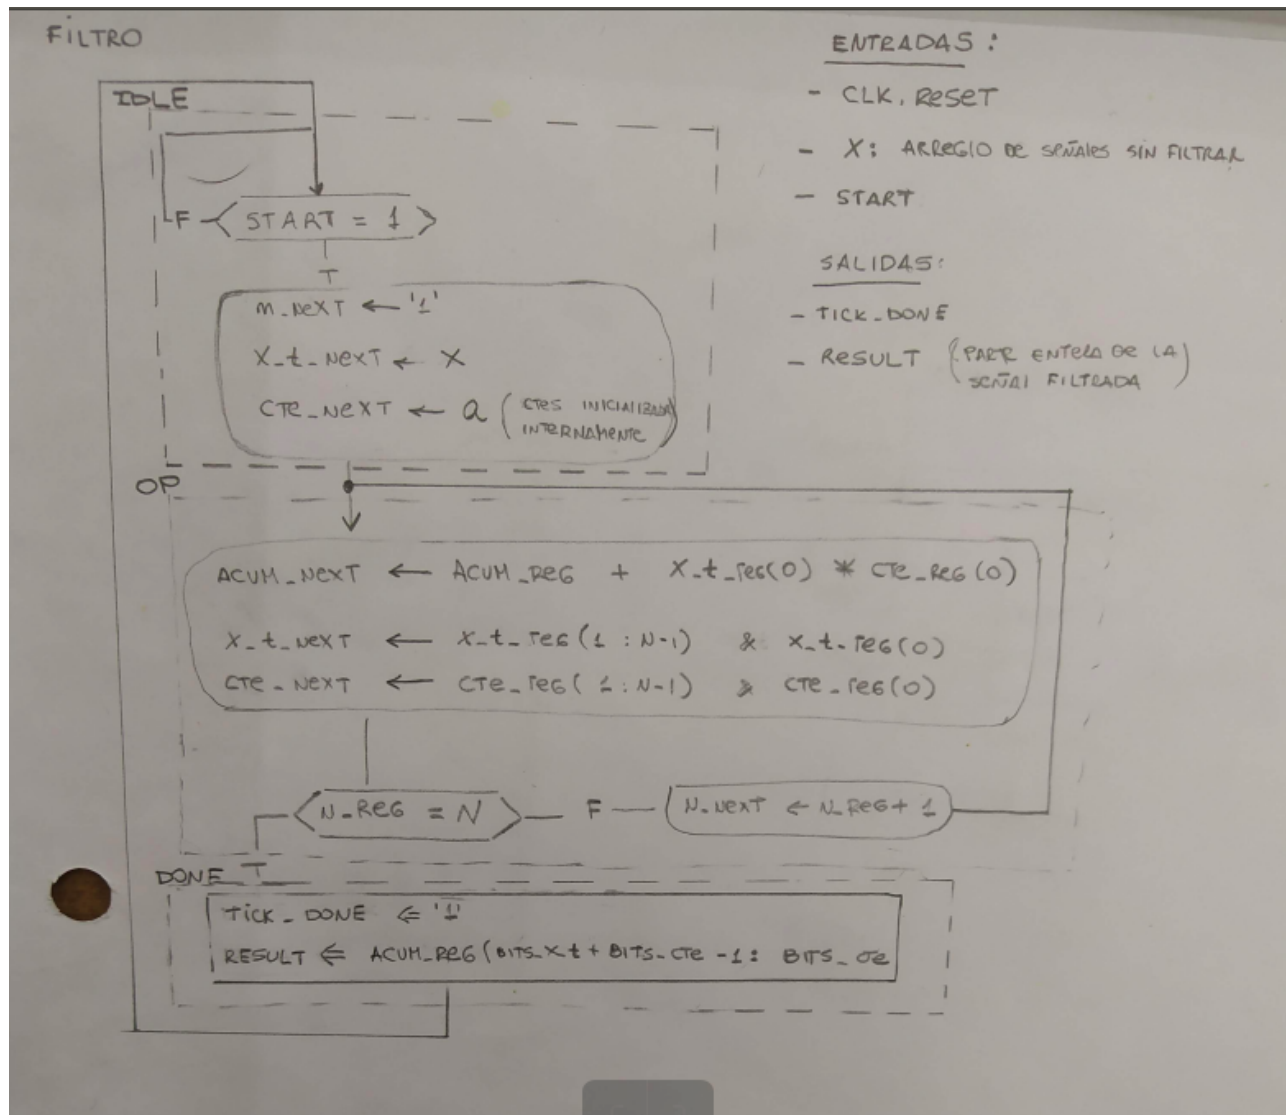 FILTRO
IDLE
F
START = 1
T
n_NEXT ← '1'
X_t_NEXT ← X
CTE_NEXT ← a (CTES INICIALIZADA
INTERNAMENTE)
OP
ACUM_NEXT ← ACUM_REG + X_t_reg(0) * CTE_REG(0)
X_t_NEXT ← X_t_reg(1 : N-1) & X_t_reg(0)
CTE_NEXT ← CTE_reg(1 : N-1) & CTE_reg(0)
N_REG = N
F
N_NEXT ← N_REG + 1
T
DONE
TICK_DONE ⇐ '1'
RESULT ⇐ ACUM_REG(BITS_Xt + BITS_CTE -1 :
ENTRADAS :
- CLK, RESET
- X: ARREGLO DE SEÑALES SIN FILTRAR
- START
SALIDAS:
- TICK_DONE
- RESULT (PARTE ENTERA DE LA
SEÑAL FILTRADA)